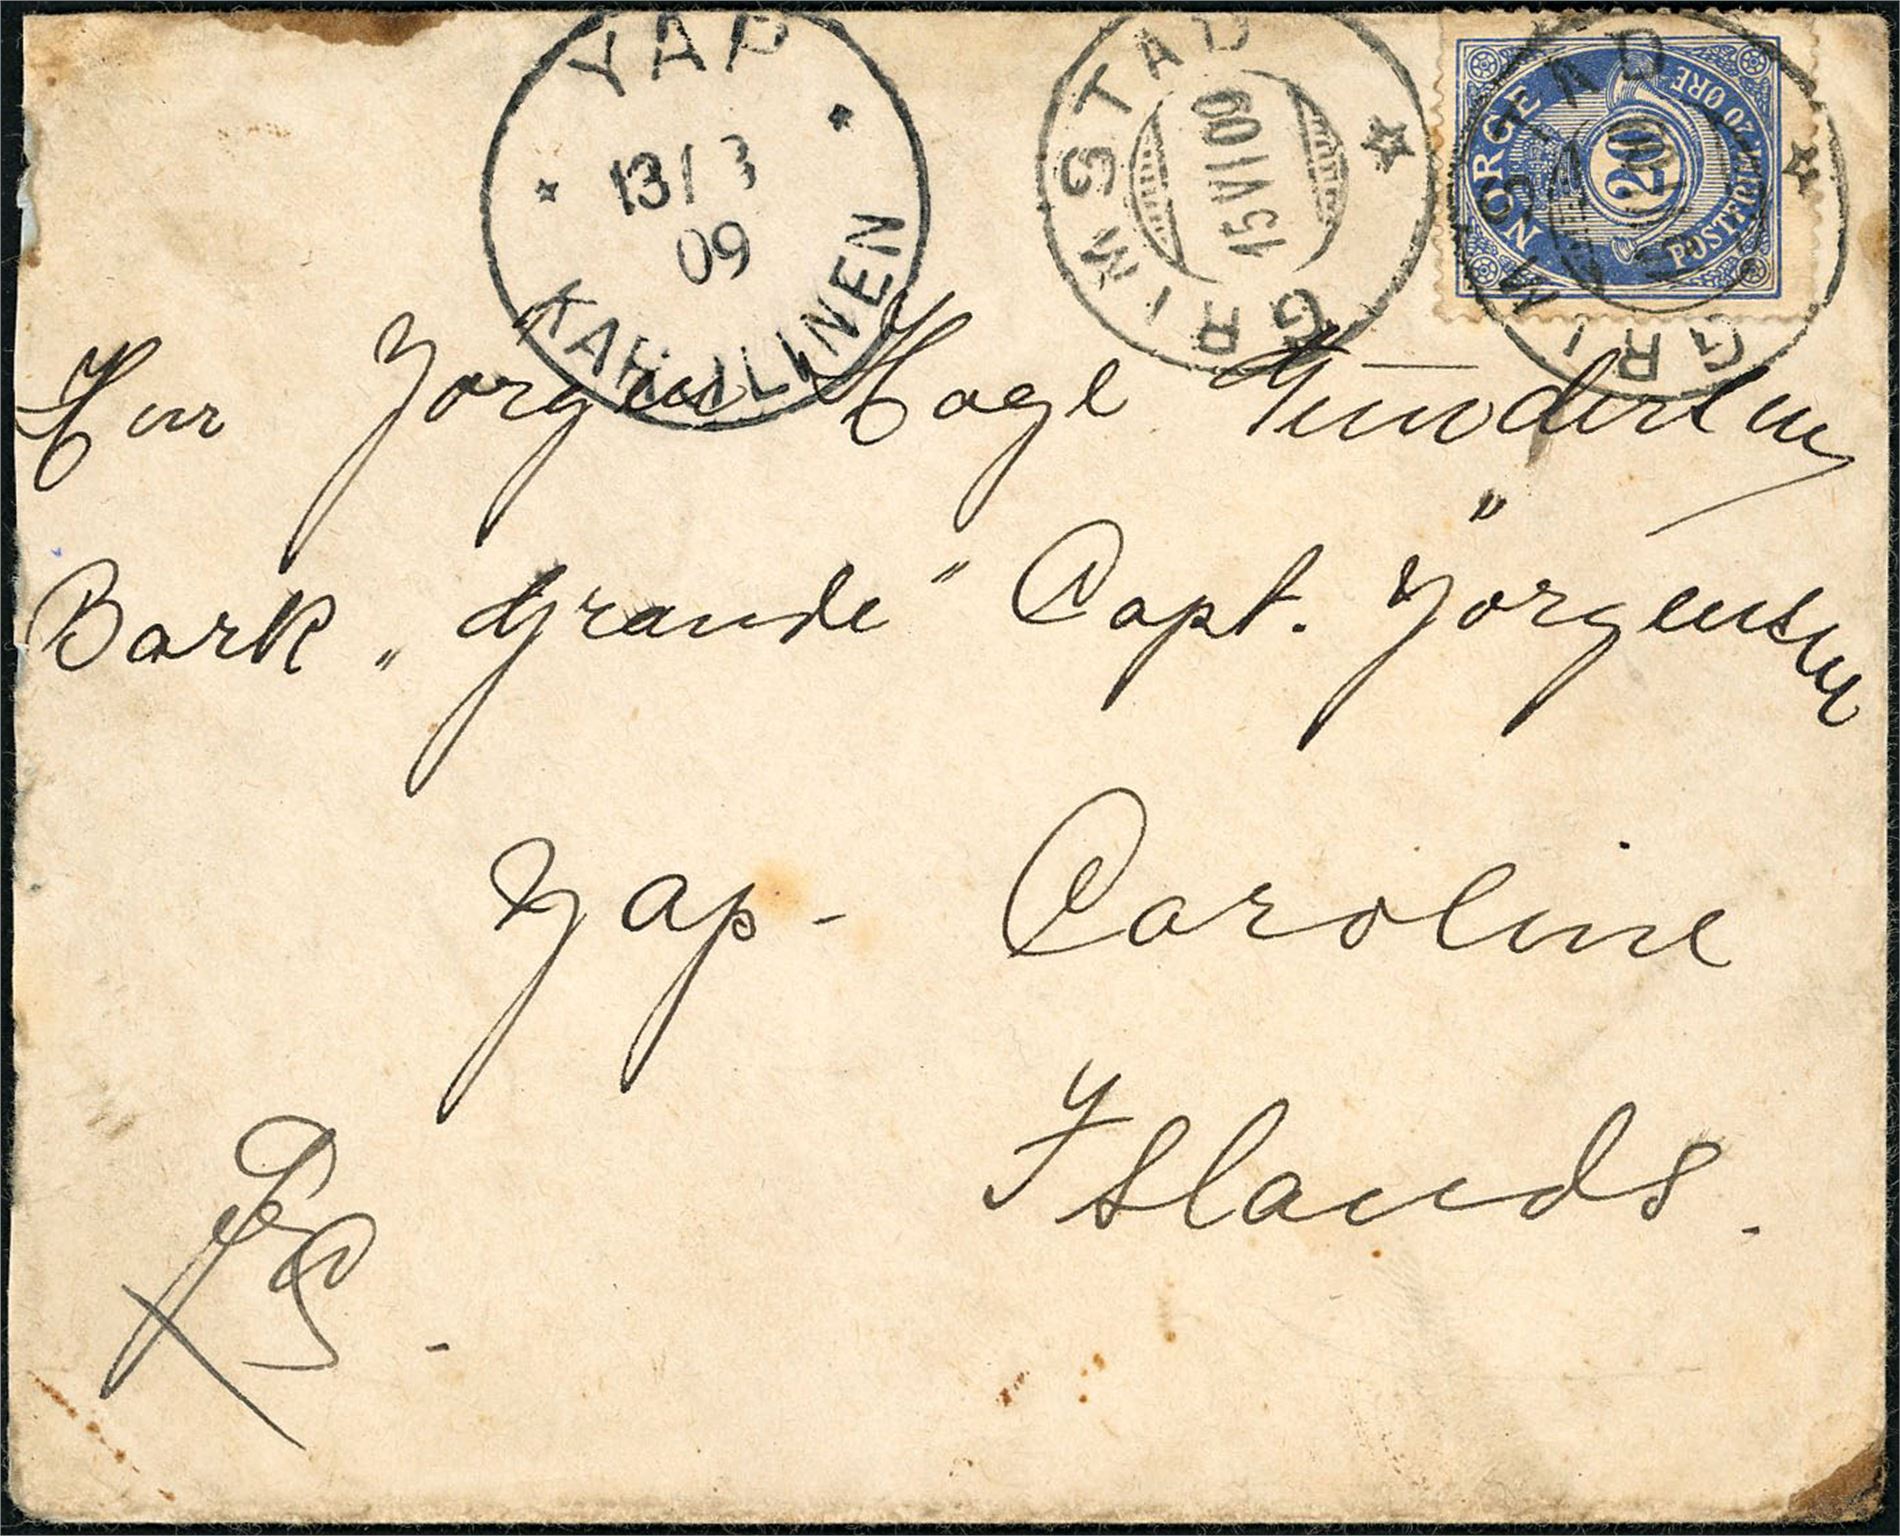 YAP
13/ 3
09
KAROLINEN
GRIMSTAD
15 VI 09
NORGE
20
POSTFRIM. 20 ØRE
GRIMSTAD
Herr Jørgen Hage Gundersen
Bark „Grande" Capt. Jörgensen
Yap - Caroline
Islands.